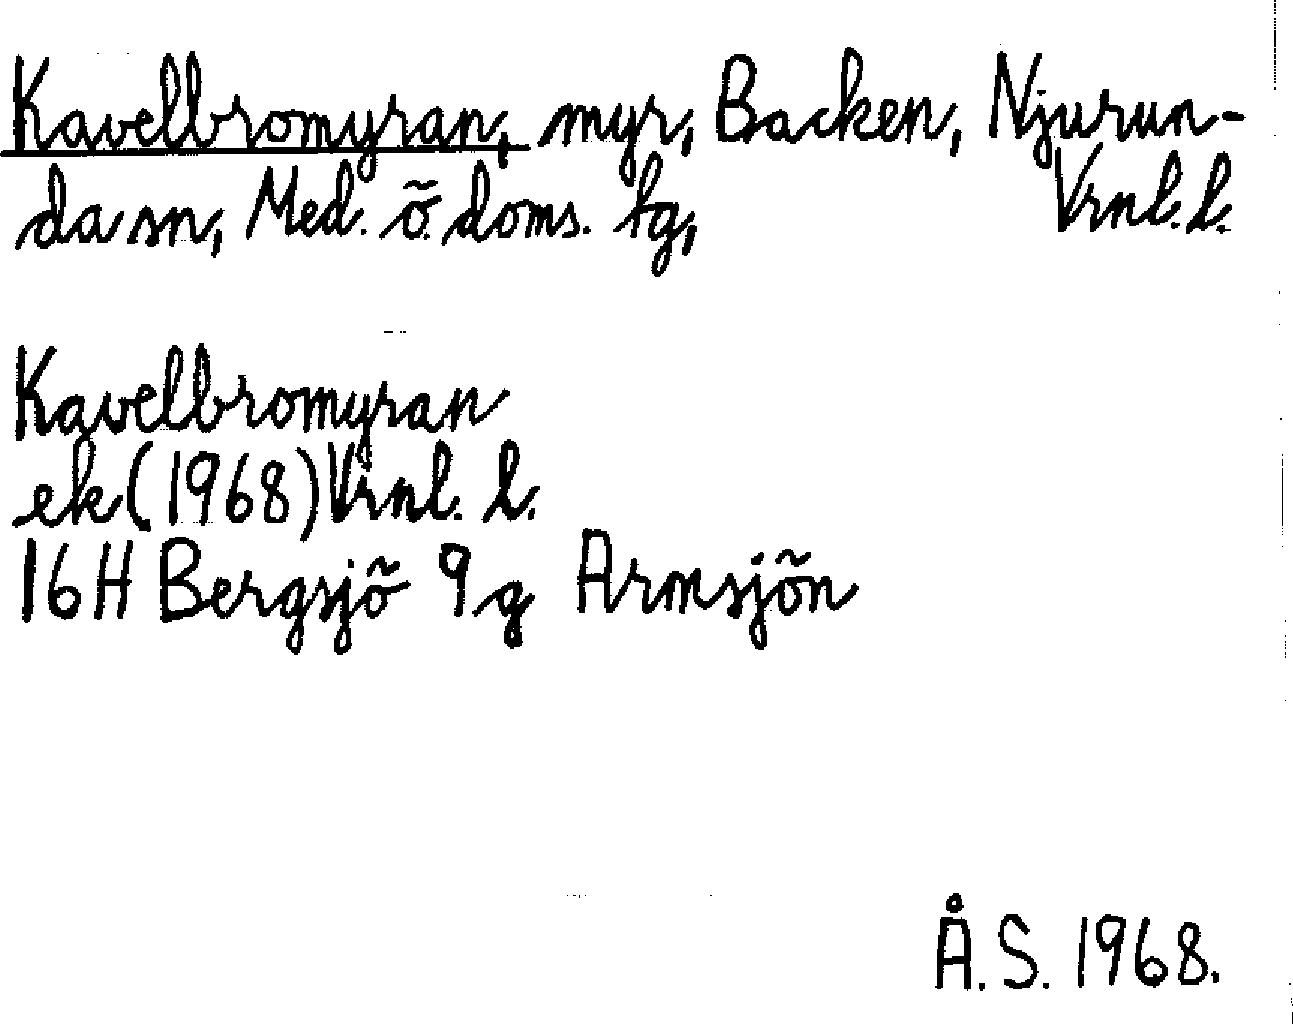 Kavelbromyran, myr, Backen, Njurun-
da sn, Med. ö. doms. tg, Vrnl. l.
Kavelbromyran
ek (1968) Vrnl. l.
16H Bergsjö 9g Armsjön
Å. S. 1968.